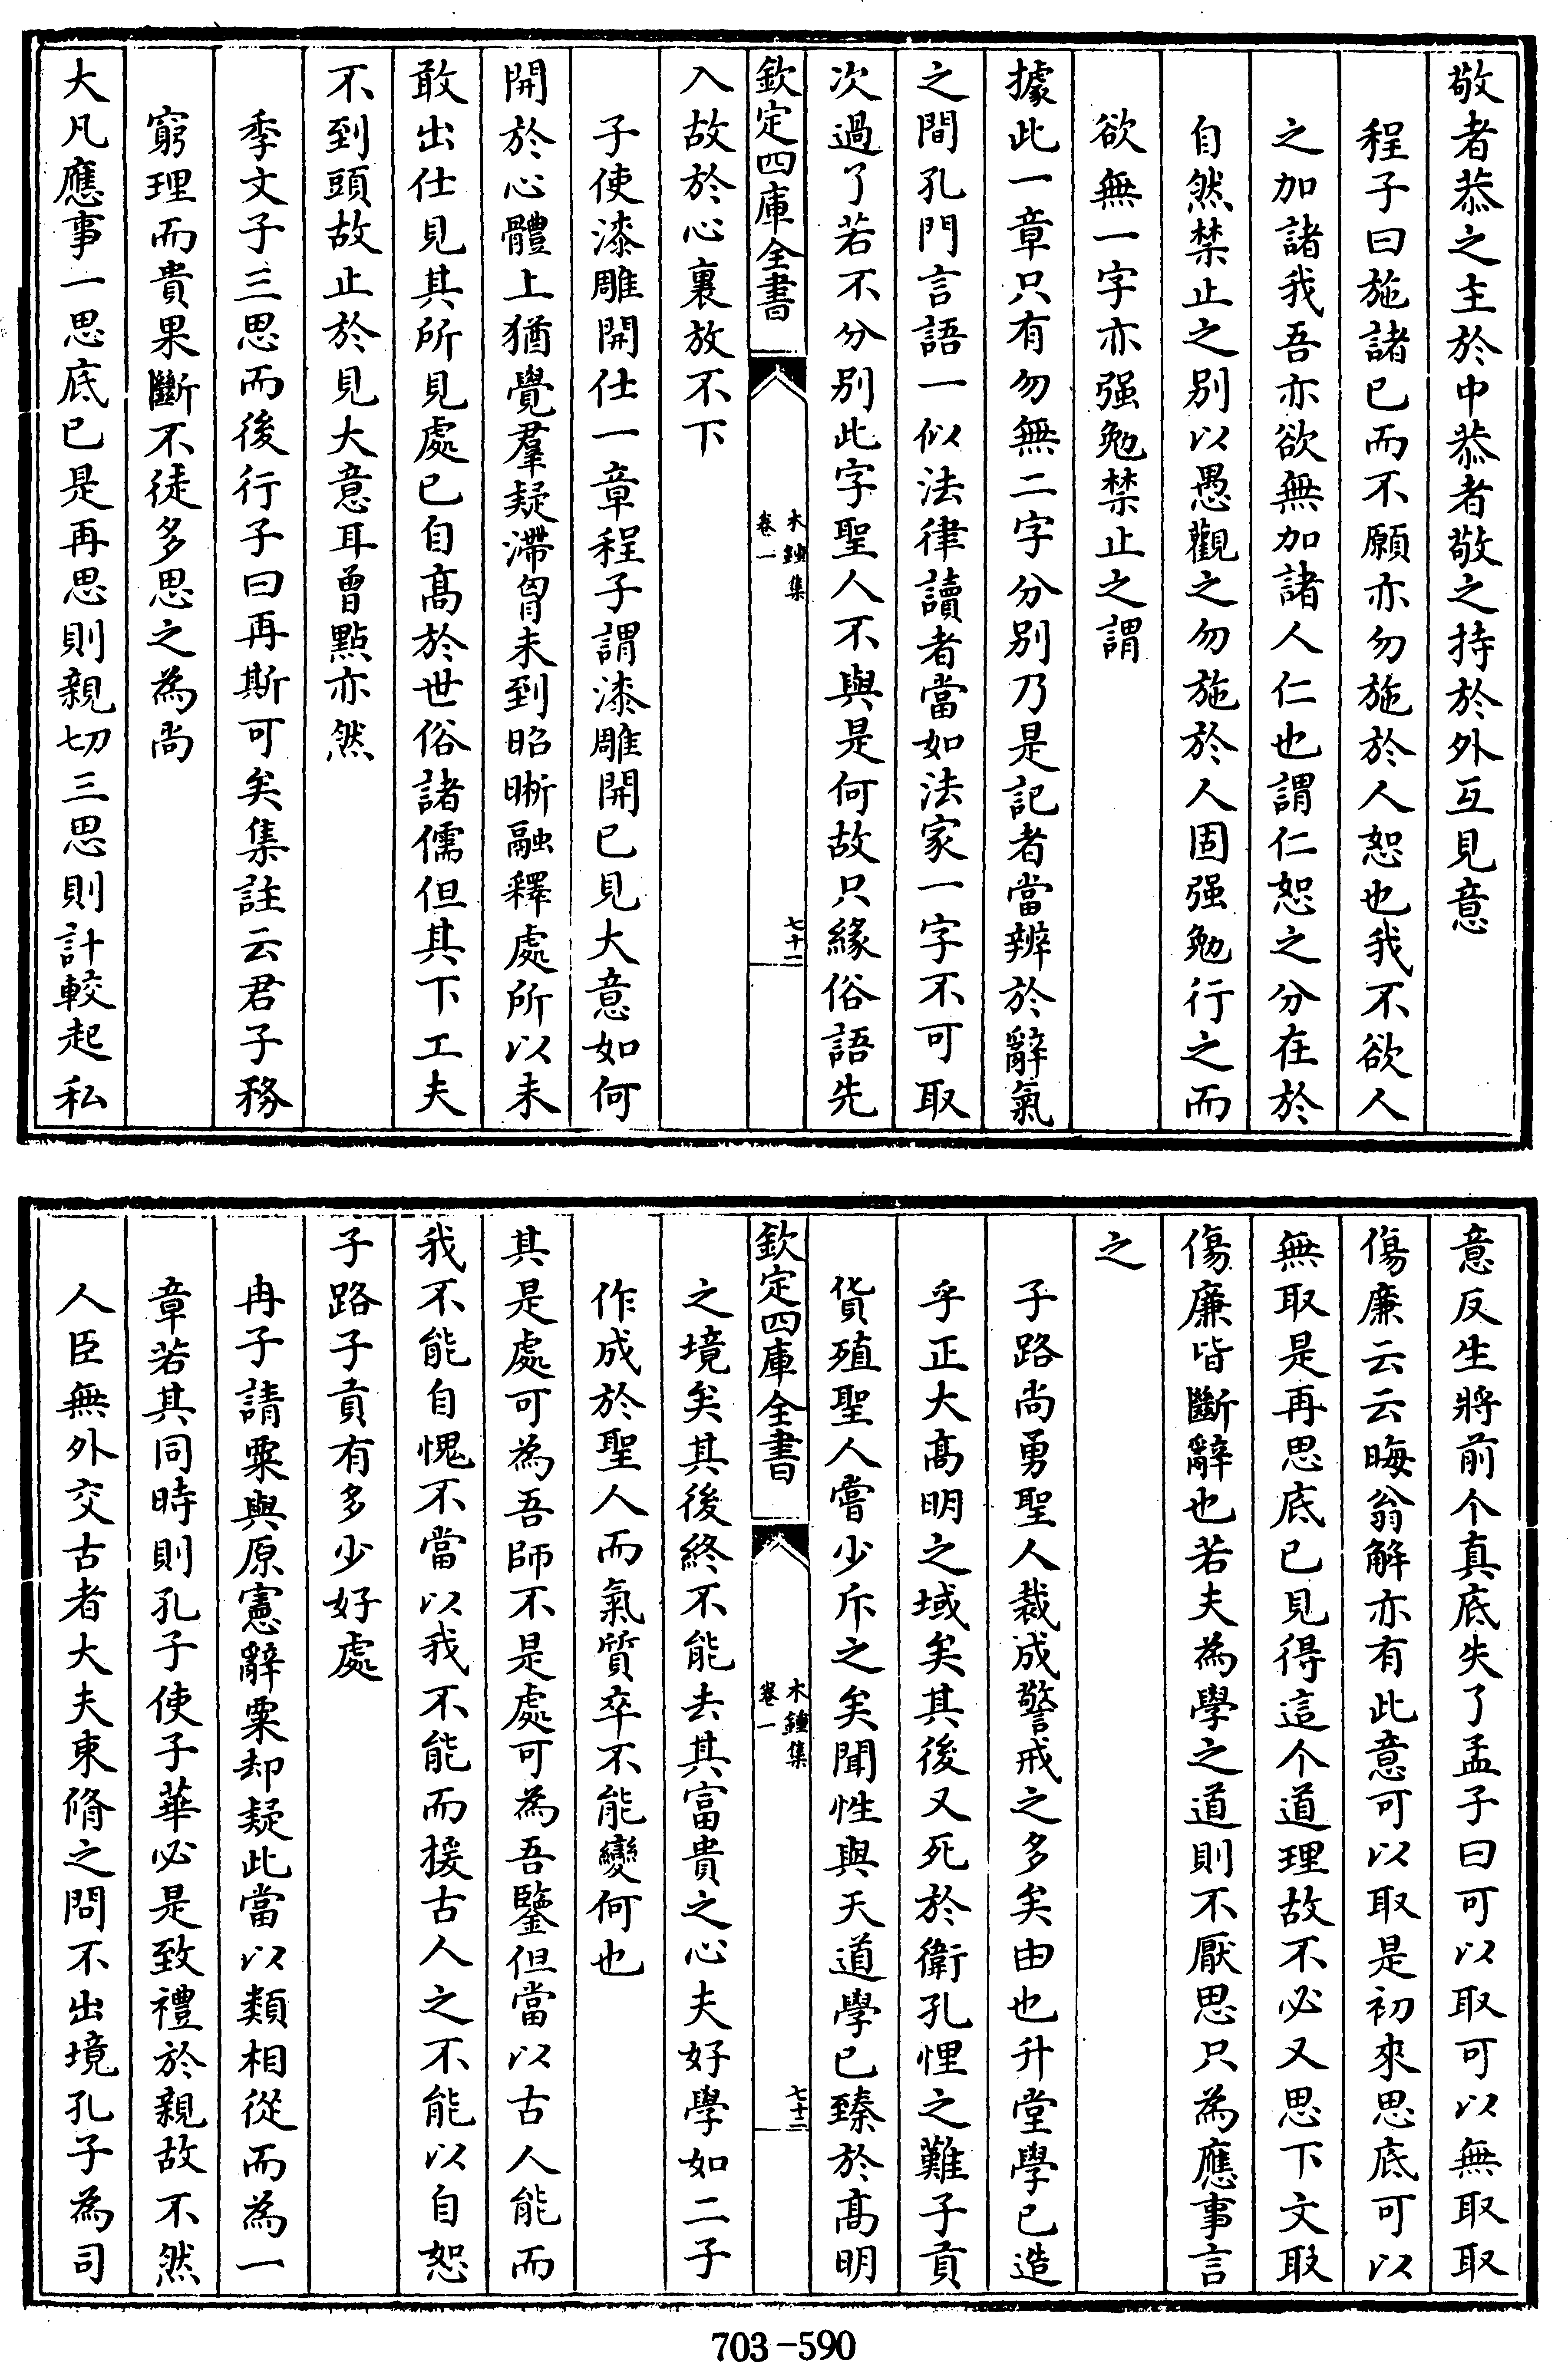 敬者恭之主於中恭者敬之持於外互見意
程子曰施諸己而不願亦勿施於人恕也我不欲人
之加諸我吾亦欲無加諸人仁也謂仁恕之分在於
自然禁止之别以愚觀之勿施於人固强勉行之而
欲無一字亦强勉禁止之謂
據此一章只有勿無二字分别乃是記者當辨於辭氣
之間孔門言語一似法律讀者當如法家一字不可取
次過了若不分别此字聖人不與是何故只緣俗語先
欽定四庫全書
木鍾集
卷一
七十二
入故於心裏放不下
子使漆雕開仕一章程子謂漆雕開已見大意如何
開於心體上猶覺羣疑滯胷未到昭晰融釋處所以未
敢出仕見其所見處已自髙於世俗諸儒但其下工夫
不到頭故止於見大意耳曾點亦然
季文子三思而後行子曰再斯可矣集註云君子務
窮理而貴果斷不徒多思之為尚
大凡應事一思底已是再思則親切三思則計較起私
意反生將前个真底失了孟子曰可以取可以無取取
傷廉云云晦翁解亦有此意可以取是初來思底可以
無取是再思底已見得這个道理故不必又思下文取
傷廉皆斷辭也若夫為學之道則不厭思只為應事言
之
子路尚勇聖人裁成警戒之多矣由也升堂學已造
乎正大髙明之域矣其後又死於衛孔悝之難子貢
貨殖聖人嘗少斥之矣聞性與天道學已臻於髙明
欽定四庫全書
木鍾集
卷一
七十三
之境矣其後終不能去其富貴之心夫好學如二子
作成於聖人而氣質卒不能變何也
其是處可為吾師不是處可為吾鑒但當以古人能而
我不能自愧不當以我不能而援古人之不能以自恕
子路子貢有多少好處
冉子請粟與原憲辭粟却疑此當以類相從而為一
章若其同時則孔子使子華必是致禮於親故不然
人臣無外交古者大夫束脩之問不出境孔子為司
703-590